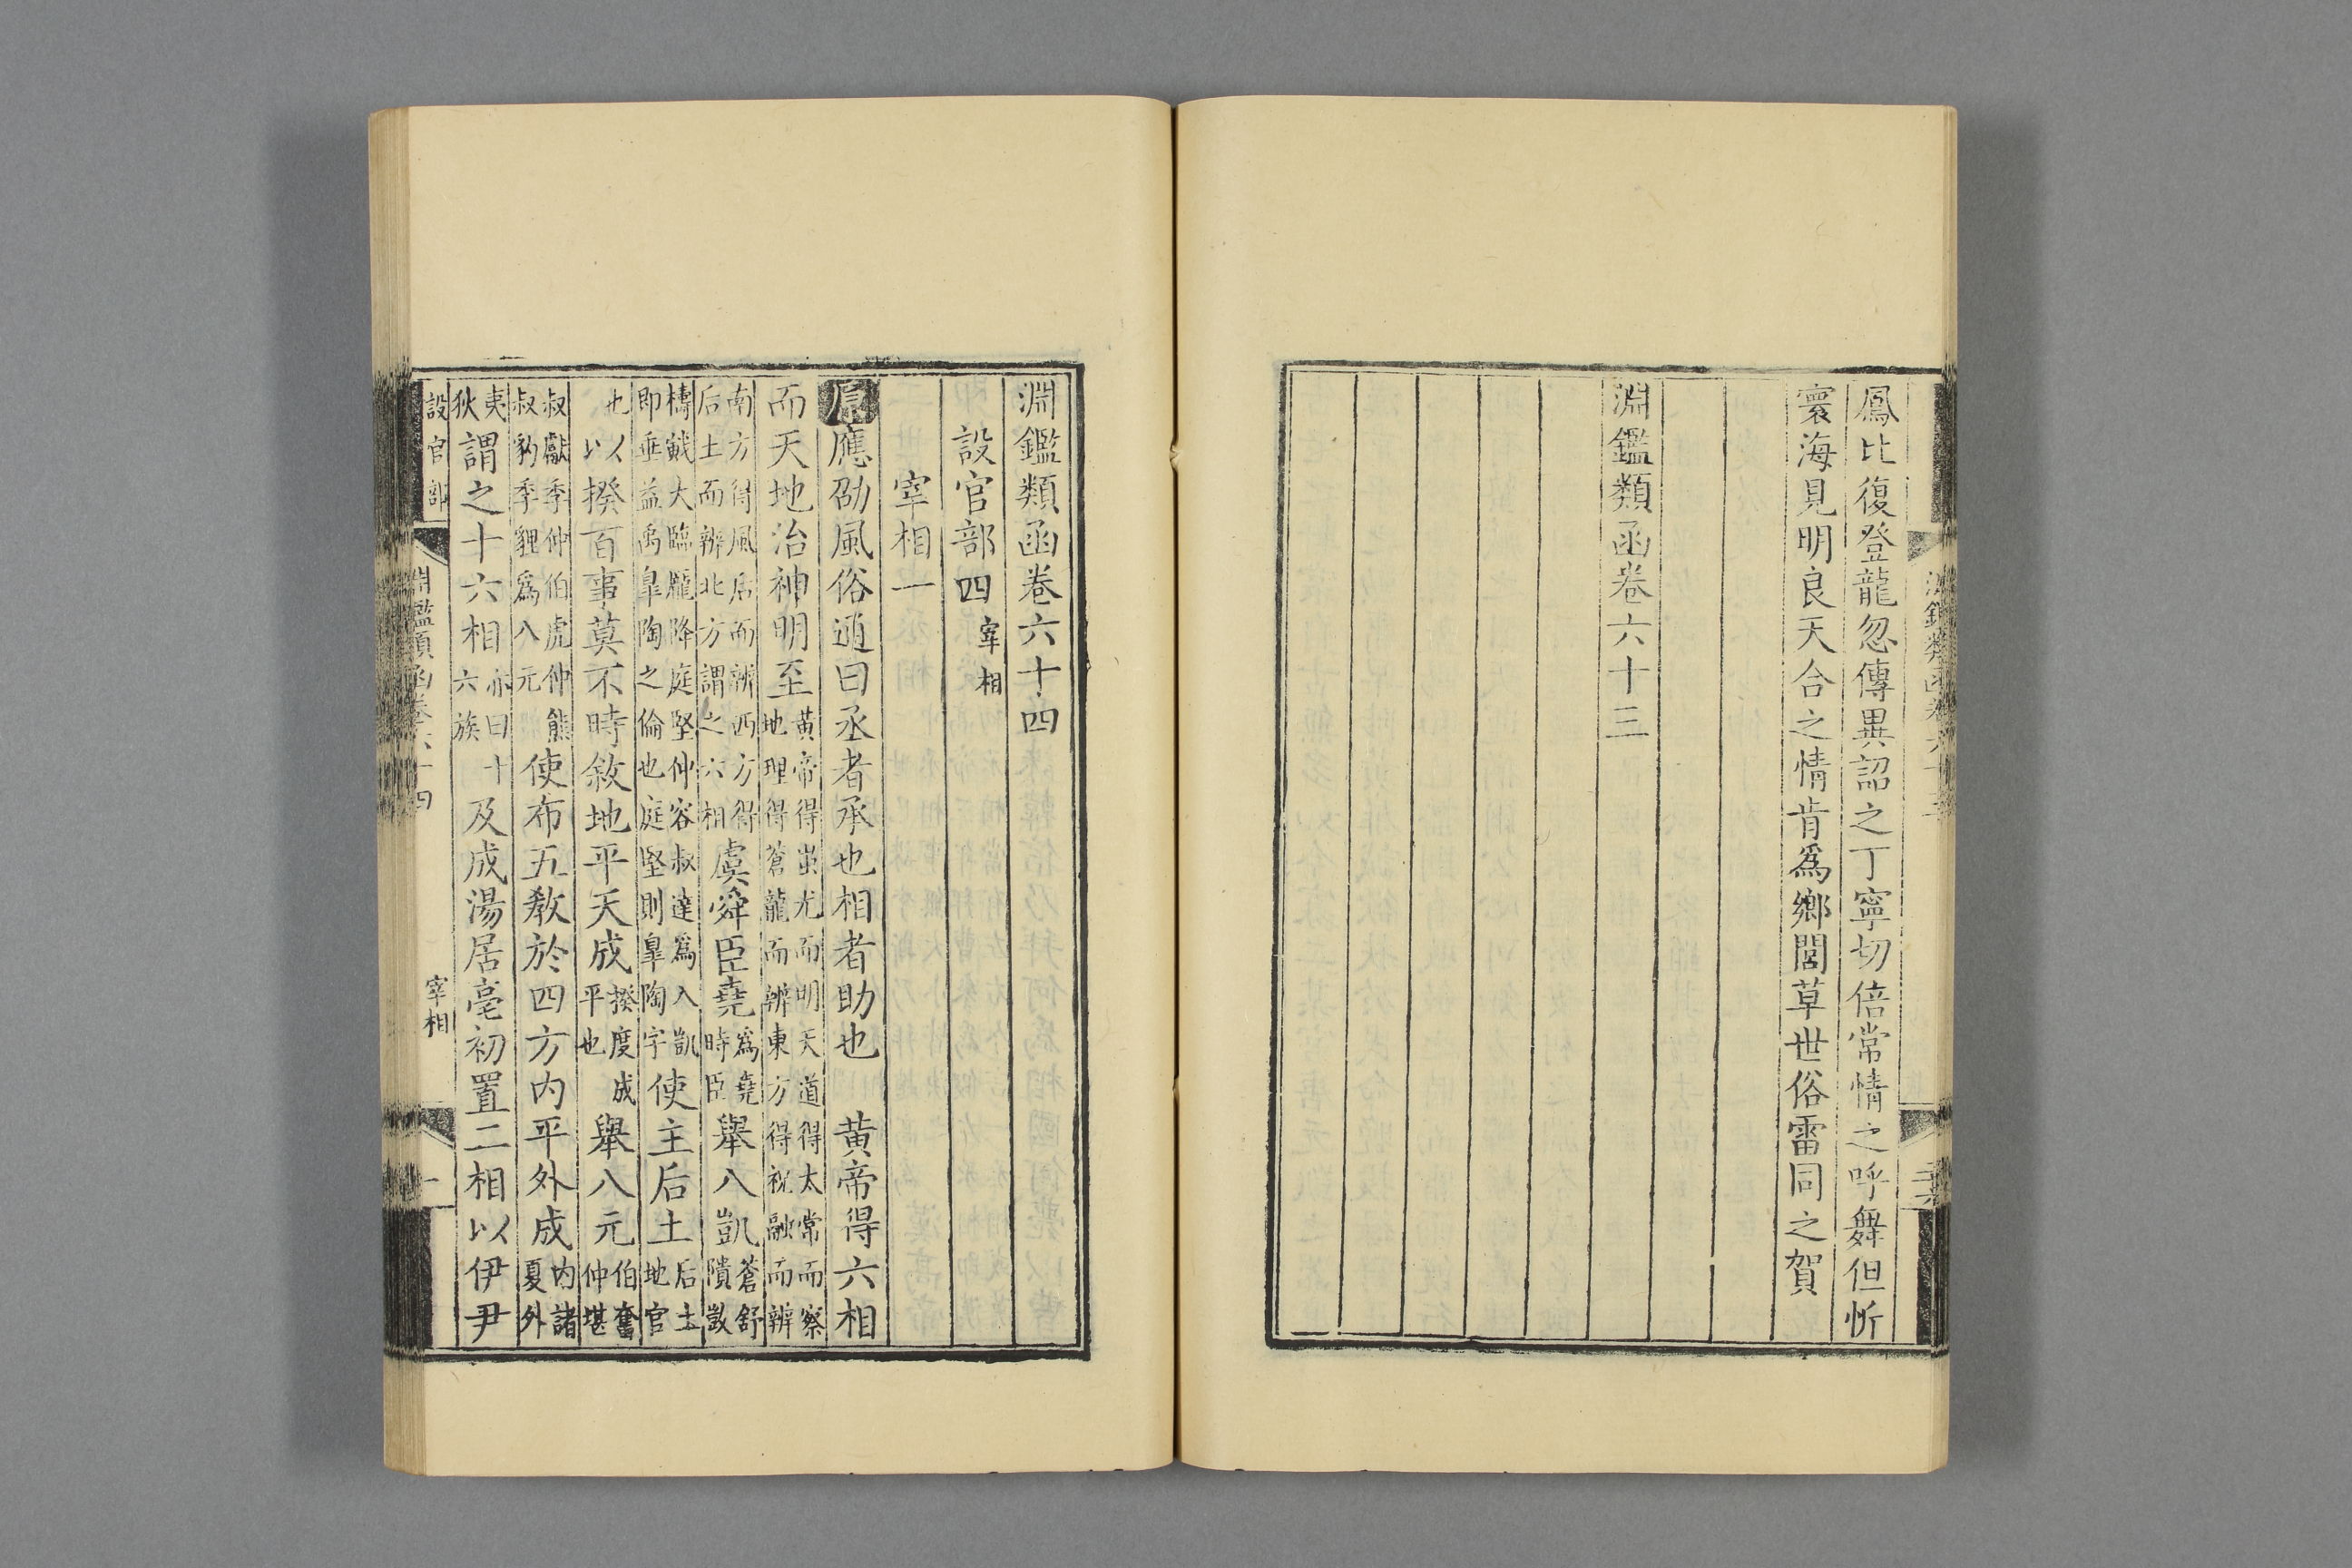 鳳比復登龍忽傳異詔之丁寧切倍常情之呼舞但忻
寰海見明良天合之情肯爲鄉閭草世俗雷同之賀
淵鑑類函卷六十三
淵鑑類函卷六十四
設官部四宰相
宰相一
原應劭風俗通曰丞者承也相者助也 黃帝得六相
而天地治神明至黃帝得蚩尤而明天道得太常而察地理得蒼龍而辨東方得祝融而辨
南方得風后而辨西方得后土而辨北方謂之六相虞舜臣堯爲堯時臣舉八凱蒼舒隤敳
檮戭大臨龎降庭堅仲容叔達爲八凱即垂益禹臯陶之倫也庭堅則臯陶字使主后土后土地官
也以揆百事莫不時敘地平天成揆度成平也舉八元伯奮仲堪
叔獻季仲伯虎仲熊叔豹季貍爲八元使布五教於四方內平外成內諸夏外
夷狄謂之十六相亦曰十六族及成湯居亳初置二相以伊尹
設官部
淵鑑類函卷六十四
宰相
一